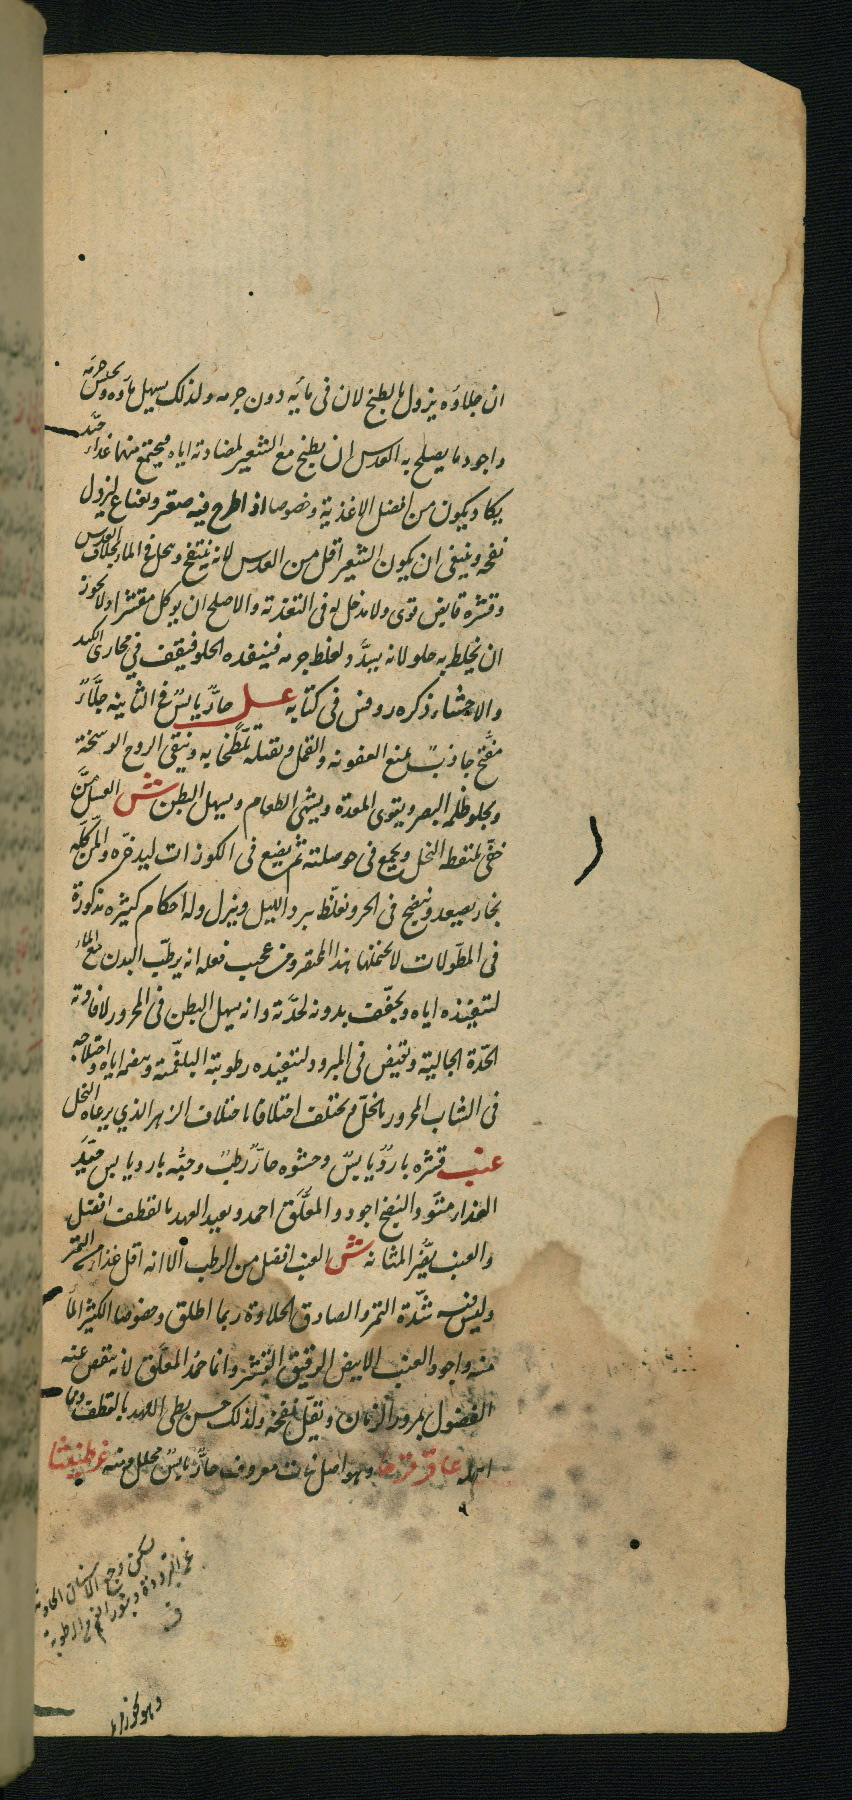 ان جلاؤه يزول بالطبخ لان فى مائيه دون جرمه ولذلك يسهل ماؤه ويحبس جرمه
واجود ما يصلح به العدس ان يطبخ مع الشعير لمضادته اياه فيجتمع منهما غذاء جيّد
يكاد يكون من افضل الاغذية وخصوصا اذا طرح فيه صعتر ونعناع ليزول
نفخه وينبغى ان يكون الشعير اقل من العدس لانه ينتفخ وينحل فى الماء بخلاف العدس
وقشره قابض قوى ولا مدخل له فى التغذية والاصلح ان يوكل مقشرا ولا يجوز
ان يخلط به حلو لانه يسدّ ولغلظ جرمه فينفذه الحلو فيقف فى مجارى الكبد
والاحشاء ذكره روفس فى كتابه عسل حارّ يابس فى الثانية جلّاء
مفتح جاذب يمنع العفونه والقمل ويقتله تلطّخا به وينقى القروح الوسخة
ويجلو ظلمة البصر ويقوى المعدة ويشهى الطعام ويسهل البطن ش العسل منّ
خفىّ يلتقطه النحل ويجمع فى حوصلته ثم يضع فى الكوزات ليدخره والمنّ كله
بخار يصعد وينضج فى الحر ويغلظ ببرد الليل وينزل وله احكام كثيرة مذكورة
فى المطولات لا يحتملها هذا المختصر ومن عجيب فعله انه يرطّب البدن مع الماء
لتنفيذه اياه ويجفّف بدونه لحدّته وانه يسهل البطن فى المحرور لافادته
الحدّة الجالية ويقبض فى المبرود لتنفيذه رطوبته البلغمية وهضمه اياه
فى الشاب المحرور بالخل ثم يختلف اختلافا باختلاف الزهر الذي يرعاه النحل
عنب قشره بارد يابس وحشوه حارّ رطب وحبّه بارد يابس جيّد
الغذاء مقوّ والنضيج اجود والمعلّق احمد وبعيد العهد بالقطف افضل
والعنب يضر المثانه ش العنب افضل من الرطب الا انه اقل غذاء من التمر
وليس فيه شدّة التمر والصادق الحلاوة ربما اطلق وخصوصا الكثير الماء
منه واجود العنب الابيض الرقيق القشر وانما حمد المعلّق لانه ينقص عنه
الفضول بمرور الزمان ويقلّ نفخه ولذلك حسن بطى العهد بالقطف
عاقرقرحا وهو اصل نبات معروف حارّ يابس محلل
يسكن وجع الاسنان